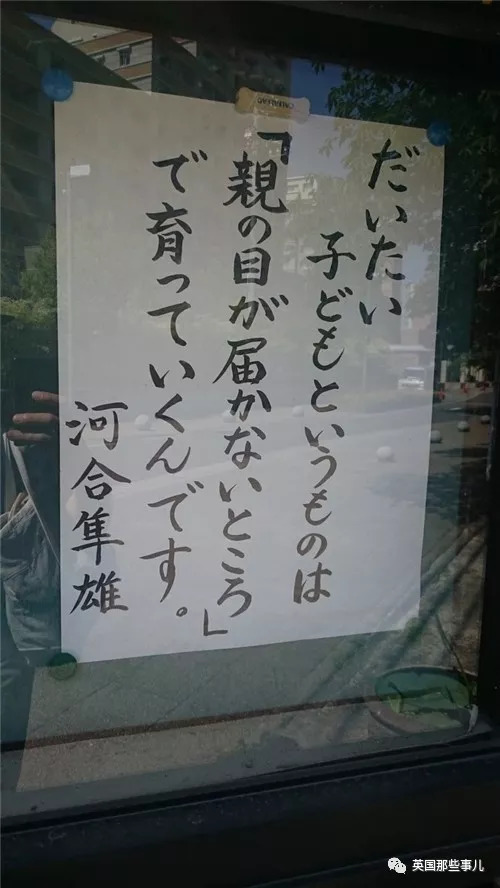 だいたい
子どもというものは
「親の目が届かないところ」
で育っていくんです。
河合隼雄
英国那些事儿